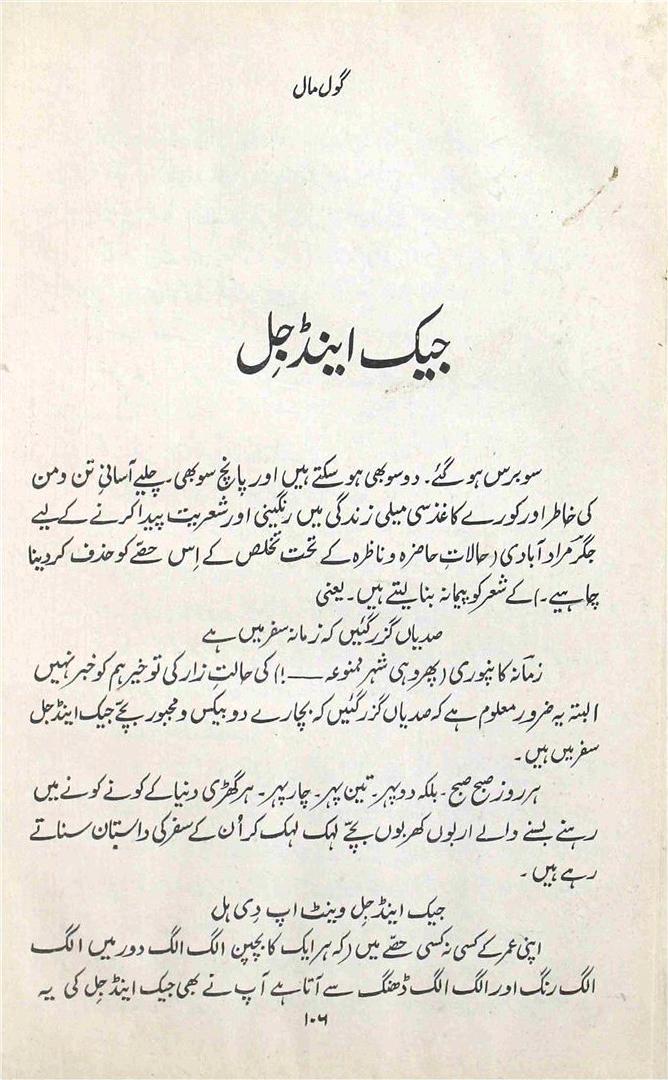 گول مال
جیک اینڈ جِل
سو برس ہو گئے۔ دو سو بھی ہو سکتے ہیں اور پانچ سو بھی۔ چلیے آسانیٔ تن و من
کی خاطر اور کورے کاغذ سی میلی زندگی میں رنگینی اور شعریت پیدا کرنے کے لیے
جگر مراد آبادی (حالاتِ حاضرہ و ناظرہ کے تحت تخلص کے اِس حصّے کو حذف کر دینا
چاہیے۔) کے شعر کو پیمانہ بنا لیتے ہیں۔ یعنی
صدیاں گزر گئیں کہ زمانہ سفر میں ہے
زمانہ کانپوری (پھر وہی شہر ممنوعہ ——!) کی حالتِ زار کی تو خیر ہم کو خبر نہیں
البتہ یہ ضرور معلوم ہے کہ صدیاں گزر گئیں کہ بچارے دو بیکس و مجبور بچّے جیک اینڈ جل
سفر میں ہیں۔
ہر روز صبح صبح۔ بلکہ دوپہر۔ تین پہر۔ چار پہر۔ ہر گھڑی دنیا کے کونے کونے میں
رہنے بسنے والے اربوں کھربوں بچّے لہک لہک کر اُن کے سفر کی داستان سناتے
رہے ہیں۔
جیک اینڈ جِل وینٹ اپ دِی ہل
اپنی عمر کے کسی نہ کسی حصّے میں (کہ ہر ایک کا بچپن الگ الگ دور میں الگ
الگ رنگ اور الگ الگ ڈھنگ سے آتا ہے آپ نے بھی جیک اینڈ جِل کی یہ
۱۰۶